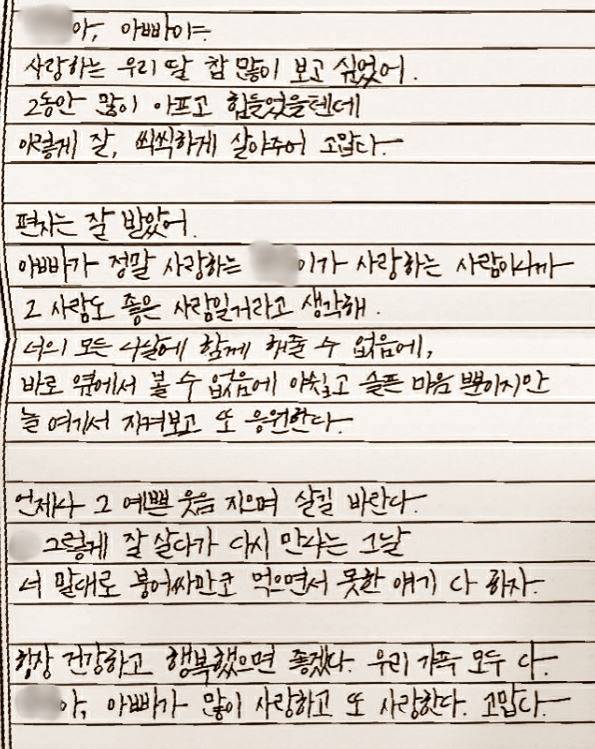 아, 아빠야.
사랑하는 우리 딸 참 많이 보고 싶었어.
그동안 많이 아프고 힘들었을텐데
이렇게 잘, 씩씩하게 살아주어 고맙다.
편지는 잘 받았어.
아빠가 정말 사랑하는 이가 사랑하는 사람이니까
그 사람도 좋은 사람일거라고 생각해.
너의 모든 나날에 함께 해줄 수 없음에,
바로 옆에서 볼 수 없음에 아쉽고 슬픈 마음 뿐이지만
늘 여기서 지켜보고 또 응원한다.
언제나 그 예쁜 웃음 지으며 살길 바란다.
그렇게 잘 살다가 다시 만나는 그날
너 말대로 붕어싸만코 먹으면서 못한 얘기 다 하자.
항상 건강하고 행복했으면 좋겠다. 우리 가족 모두 다.
아, 아빠가 많이 사랑하고 또 사랑한다. 고맙다.